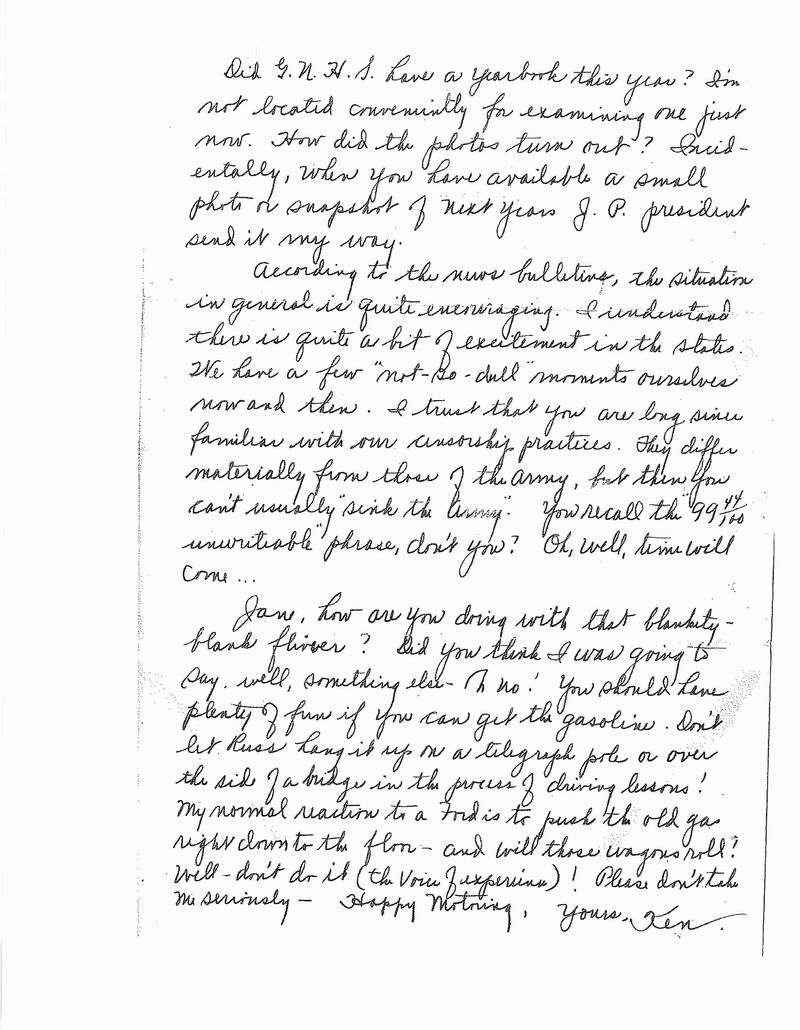 Did G.N.H.S. have a yearbook this year? I'm
not located conveniently for examining one just
now. How did the photos turn out? Incid-
entally, when you have available a small
photo or snapshot of next years J.P. president
send it my way.
According to the news bulletins, the situation
in general is quite encouraging. I understand
there is quite a bit of excitement in the states.
We have a few "not-so-dull" moments ourselves
now and then. I trust that you are long since
familiar with our censorship practices. They differ
materially from those of the Army, but then you
can't usually "sink the Army". You recall the "99 44/100
unwriteable" phrase, don't you? Oh, well, time will
come...
Jane, how are you doing with that blankity-
blank flivver? Did you think I was going to
say, well, something else- Oh no! You should have
plenty of fun if you can get the gasoline. Don't
let Russ hang it up on a telegraph pole or over
the side of a bridge in the process of driving lessons!
My normal reaction to a Ford is to push the old gas
right down to the floor - and will those wagons roll!
Well - don't do it (the Voice of experience)! Please don't take
me seriously - Happy Motoring, Yours, Ken.